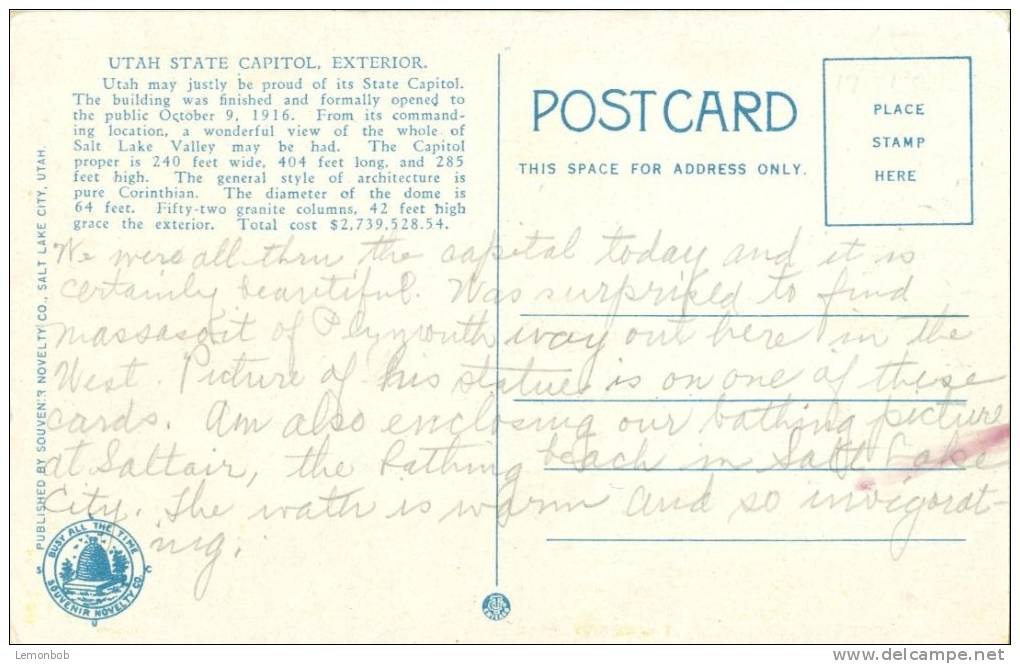 UTAH STATE CAPITOL, EXTERIOR.
Utah may justly be proud of its State Capitol.
The building was finished and formally opened to
the public October 9, 1916. From its command-
ing location, a wonderful view of the whole of
Salt Lake Valley may be had. The Capitol
proper is 240 feet wide, 404 feet long, and 285
feet high. The general style of architecture is
pure Corinthian. The diameter of the dome is
64 feet. Fifty-two granite columns, 42 feet high
grace the exterior. Total cost $2,739,528.54.
POST CARD
THIS SPACE FOR ADDRESS ONLY.
PLACE
STAMP
HERE
We were all thru the capital today and it is
certainly beautiful. Was surprised to find
Massasoit of Plymouth way out here in the
West. Picture of his statue is on one of these
cards. Am also enclosing our bathing picture
at Saltair, the bathing beach in Salt Lake
City. The wath is warm and so invigorat-
ing.
PUBLISHED BY SOUVENIR NOVELTY CO., SALT LAKE CITY, UTAH.
BUSY ALL THE TIME
SOUVENIR NOVELTY CO.
S L C U
Lemonbob
www.delcampe.net